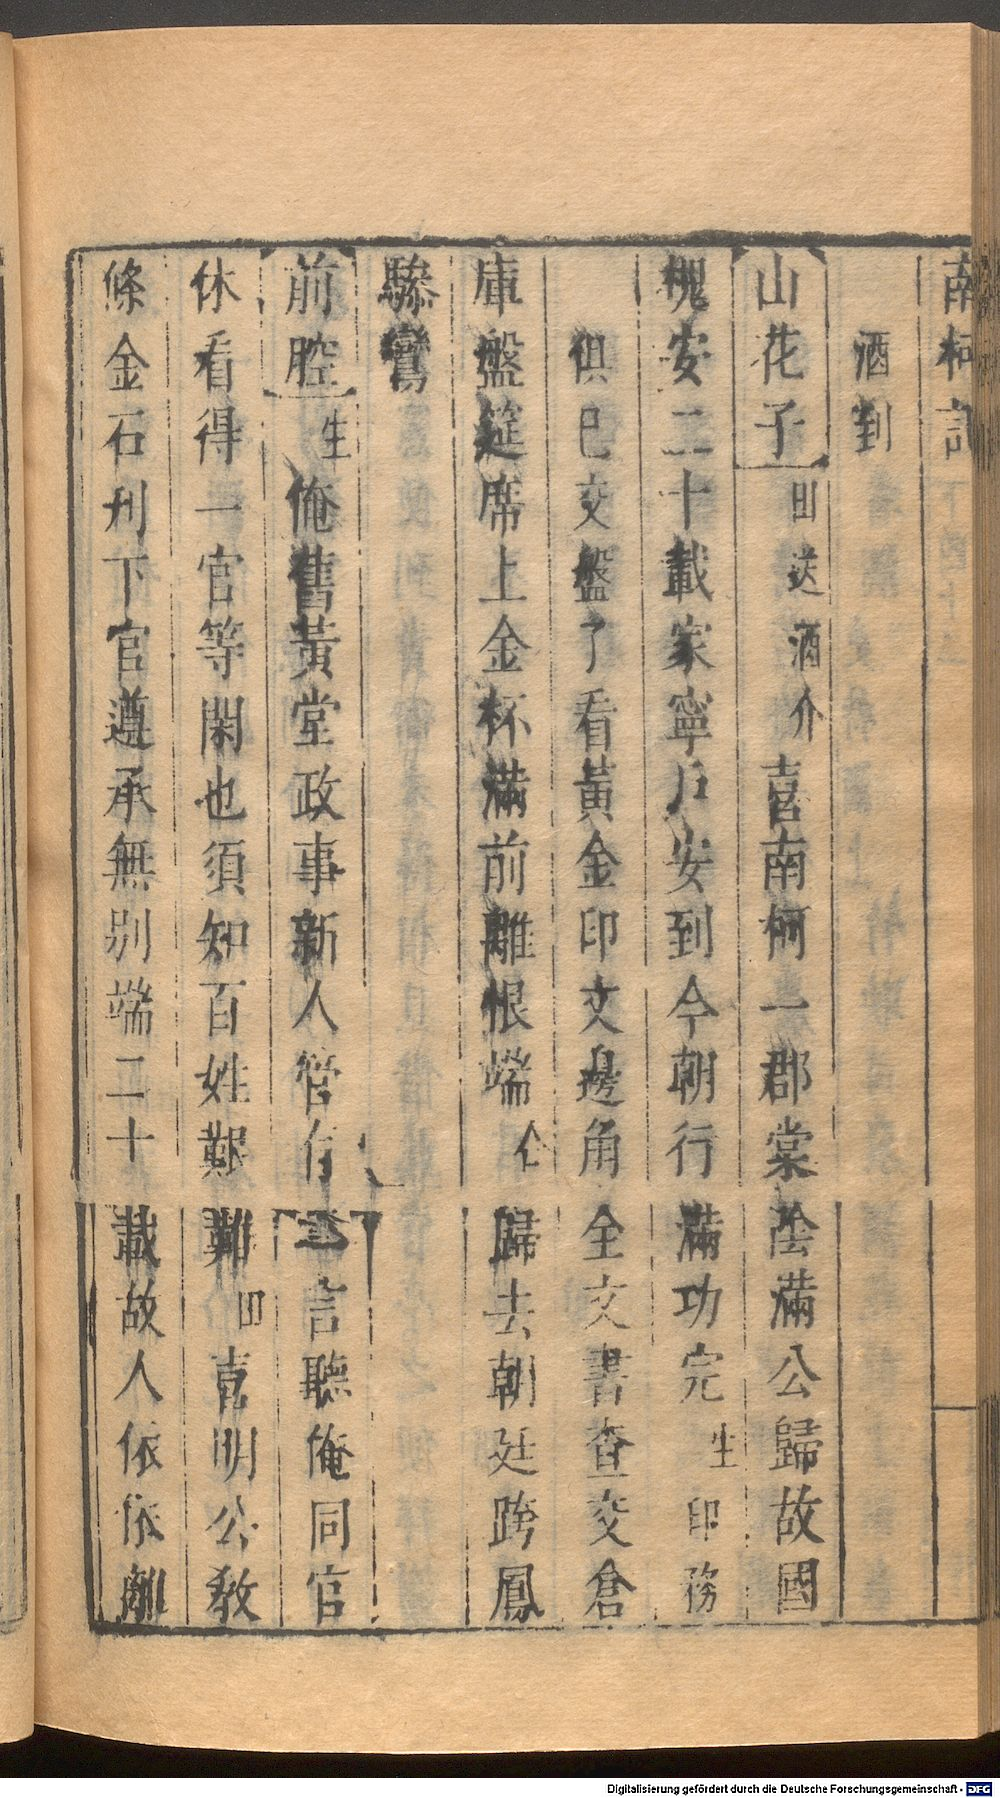 南柯記
酒到
山花子 田送酒介 喜南柯一郡棠陰滿公歸故國
槐安二十載家寧戶安到今朝行滿功完 生 印務
俱已交盤了看黃金印文邊角全文書查交倉
庫盤筵席上金杯滿前離恨端 仝 歸去朝廷跨鳳
驂鸞
前腔 生 俺舊黃堂政事新人管有一言聽俺同官
休看得一官等閑也須知百姓艱難 田 喜明公教
條金石刊下官遵承無別端二十載故人依依離
Digitalisierung gefördert durch die Deutsche Forschungsgemeinschaft - DFG